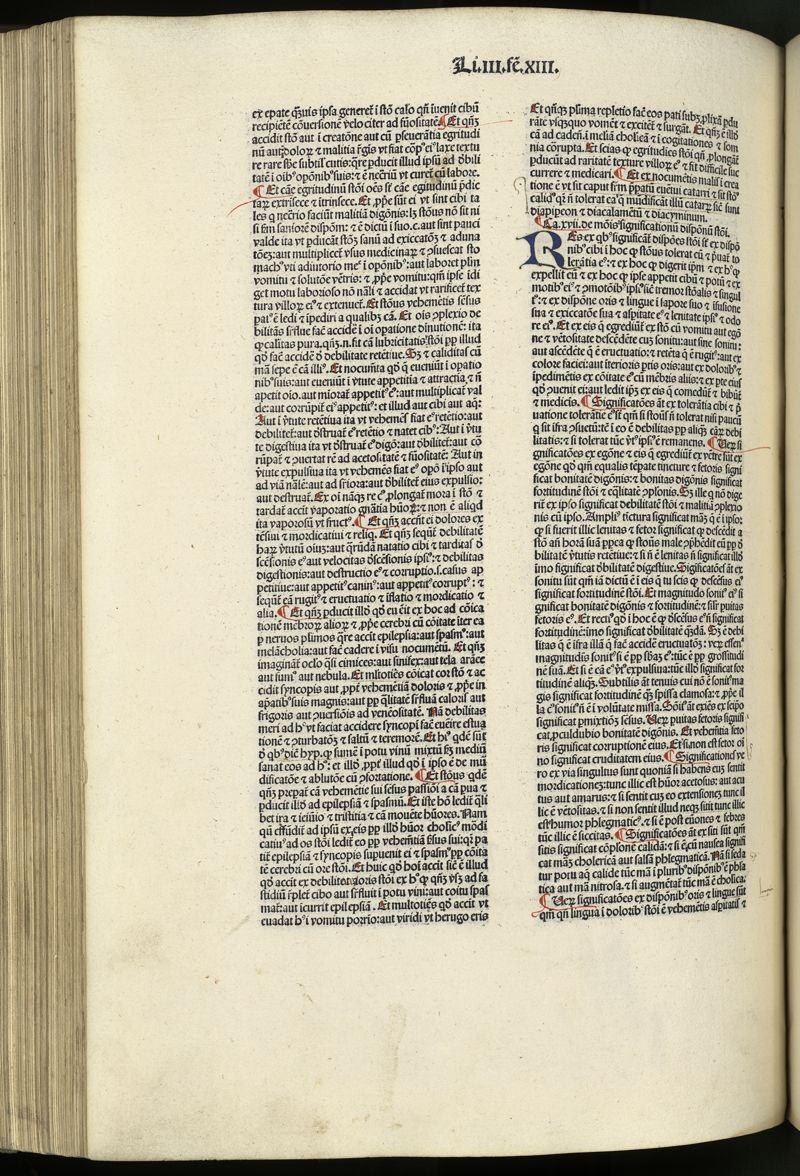 Li.III.fē.XIII.
ex epate q̃uis ipsa generet̄ ī stō calo qñ īuenit cibū
recipiētē cōuersionē velociter ad fūositatē ¶ Et qñq̨
accidit stō aut ī creatōne aut cū ꝑseuerātia egritudi
re rare sbe subtil cutis: q̃re ꝓducit illud ipsū ad dbili
tatē ī oib opōnib suis: ⁊ ē necriū vt curet̄ cū labore.
¶ Et cāe egritudinū stōi oēs st cāe egitudinū p̄dic
tar̄ extrīsece ⁊ ītrīsece. Et ꝓpe sūt ei vt sint cibi ta
les q̨ necrio faciūt malitiā digōnis: lz stōus nō sit ni
si fm saniorē dispōm: ⁊ ē dictū ī suo.c. aut sint pauci
valde ita vt ꝓducāt stōz sanū ad exiccatōz ⁊ aduna
tōez: aut multiplicet̄ vsus medicinar̄ ⁊ ꝯsuescat sto
mach vti adiutorio
vomitu ⁊ solutōe vētris: ⁊ ꝓpe vomitu: qm̄ ipse idi
get motu laborioso nō nāli ⁊ accidat vt rarificet̄ tex
tura villor̄ ei ⁊ extenuet̄. Et stōus vehemētis sēsus
pat̄ ē ledi ⁊ īpediri a qualibz cā. Et ois ꝯplexio de
bilitās srflue faē accidē ī oī opatione dinutionē: ita
qd̄ faē accidē d debilitate retētiue. Sz ⁊ caliditas cū
mā sepe ē cā illi. Et nocumta qd̄ q̨ eueniūt ī opatio
nib suis: aut eueniūt ī vtute appetitia ⁊ attractia ⁊ ñ
apetit oīo. aut miorat̄ appetit e: aut multiplicat̄ val
de: aut corrūpit̄ ei appetit: et illud aut cibi aut aq̄:
Aut ī v̄tute retētiua ita vt vehemēs fiat e retētio: aut
debilitet̄: aut dstruat̄ e retētio ⁊ natet cib: Aut ī v̄tu
te digestiua ita vt dstruat̄ e digō: aut dbilitet̄: aut cō
rūpat̄ ⁊ ꝯuertat̄ rē ad acetositatē ⁊ fūositatē: Aut in
v̄tute expulsiua ita vt vehemēs fiat e opō ī ipso aut
ad viā nālē: aut ad sriora: aut dbilitet̄ eius expulsio:
aut destruat̄. Ex oī nāq̨ re e ꝓlongat̄ mora ī stō ⁊
tardat̄ accīt vaporatio gnātia hūor̄: ⁊ non ē aliqd
ita vaporosū vt fruct. ¶ Et qñq̨ accn̄t ei dolores ex
tēsiui ⁊ mordicatiui ⁊ reliq̨. Et qñq̨ sequit̄ debilitatē
har̄ v̄tutū oiuz: aut q̄rūdā natatio cibi ⁊ tarditas d
scēsionis e aut velocitas dscēsionis ipsi: ⁊ debilitas
digestionis: aut destructio e ⁊ corruptio. s. casus ap
petitiue: aut appetit canin: aut appetit corrupt: ⁊
sequit̄ eā rugit ⁊ eructuatio ⁊ īflatio ⁊ mordicatio ⁊
alia. ¶ Et qñq̨ ꝓducit illd̄ qd̄ eueīt ex hoc ad cōica
tionē mēbror̄ alior̄ ⁊ ꝓpe cerebri cū cōitate iter ea
p neruos plimos q̃re accīt epilepsia: aut spasm: aut
melācholia: aut faē cadere ī visu nocumētū. Et qñq̨
imaginat̄ oclo q̄si cimices: aut sinifex: aut tela arāee
aut fumus aut nebula. Et m̄ltotiēs cōicat cor stō ⁊ ac
cidit syncopis aut ꝓpt vehemētiā doloris ⁊ ꝓpe in
apatib suis magnis: aut pp qlitatē srfluā caloris aut
frigoris aut ꝯuersiōis ad venēositatē. Nā debilitas
meri ad h vt faciat accidere syncopi faē eueīre estua
tionē ⁊ ꝯturbatōz ⁊ saltū ⁊ teremorē. Et hi qdē sūt
d qb dicit hyp. q̨ sumē ī potu vinū mixtū fm mediū
sanat eos ad h: et illd̄ ꝓpe illud qd̄ ī ipso ē de mū
dificatōe ⁊ ablutōe cū ꝯfortatione. ¶ Et stōus qdē
qñq̨ prepat̄ cā vehemētie sui sēsus passiōi a cā pua ⁊
ꝓducit illd̄ ad epilepsiā ⁊ spasmū. Et iste hō ledit̄ qli
bet ira ⁊ ieiunio ⁊ tristitia ⁊ cā mouēte hūores. Nam
qū effūdit̄ ad ipsū ex eis pp illd̄ hūor choleric mōdi
catiu ad os stōi ledit̄ eo pp vehemētiā sēsus sui: qr̄ pa
tit̄ epilepsiā ⁊ syncopis supuenit ei ⁊ spasm pp cōita
tē cerebri cū ore stōi. Et huic qd̄ hoi accīt sic ē illud
qd̄ accīt ex debilitate caloris stōi ex h q̨ qñq̨ vsz ad fa
stidiū rplet̄ cibo aut srfluit ī potu vini: aut coitu spas
mat: aut icurrit epilepsiā. Et multotiēs qd̄ accīt vt
euadat h ī vomitu porrio: aut viridi vt herugo eris
Et qñq̨ plima repletio faē eos pati
rāte vsqzquo vomēt ⁊ excitēt ⁊ surgāt. Et qñq̨ ē illd̄
cā ad cadend̄. ī meliā cholicā ⁊ ī cogitationes ⁊ som
nia cōrupta. Et scias q̨ egritudies stōi qñ ꝓlongāt̄
ꝓducūt ad raritatē texture villor̄ e ⁊ fit difficile suc
currere ⁊ medicari. ¶ Et ex nocumētis malis ī crea
tione ē vt sit caput frm ꝑparatū euētui catarri ⁊ sit stō
calid: qr̄ ñ tolerat ea q̨ mūdificāt illū catarr̄ sic sunt
diapipeon ⁊ diacalamētū ⁊ diacyminum.
¶ Ca. xvii. de mōis significationū dispōnū stōi.
Res ex qb significāt̄ dispōes stōi st ex dispō
nib cibi ī hoc q̨ stōus tolerat eū ⁊ puat̄ to
lerātia e: ⁊ ex hoc q̨ digerit ipm̄ ⁊ ex h q̨
expellit eū ⁊ ex hoc q̨ ipse appetit cibū ⁊ potū ⁊ ex
motib ei ⁊ ꝯmotōib ipsi sic tremor stōalis ⁊ singul
t: ⁊ ex dispōne oris ⁊ lingue ī sapore suo ⁊ īfusione
sua ⁊ exiccatōe sua ⁊ aspitate ⁊ lenitate ipsi ⁊ odo
re ei. Et ex eis q̨ egrediūt̄ ex stō cū vomitu aut egō
ne ⁊ vētositate descēdēte cuz sonitu: aut sine sonitu:
aut ascēdēte q̨ ē eructuatio: ⁊ retēta q̨ ē rugit: aut ex
colore faciei: aut īterioris ptis oris: aut ex dolorib ⁊
ipedimētis ex cōitate ei cū mēbris aliis: ⁊ ex pte eius
qd̄ ꝯuenit ei: aut ledit ipz ex eis q̨ comedūt̄ ⁊ bibūt̄
⁊ medicis. ¶ Significatōes āt ex tolerātia cibi ⁊ p
uatione tolerātie e st qm̄ si stōus ñ tolerat nisi paucū
q̨ sit ifra ꝯsuetū: tē ī eo ē debilitas pp aliq̨ cār̄ debi
litatis: ⁊ si tolerat tūc v̄t ipsi ē remanens. ¶ Ver̄ si
gnificatōes ex egōne ⁊ eis q̨ egrediūt̄ ex vētre sūt ex
egōne qd̄ qm̄ equalis tēpate tincture ⁊ fetoris signi
ficat bonitatē digōnis: ⁊ bonitas digōnis significat
fortitudinē stōi ⁊ eqlitatē ꝯplonis. Sz ille q̨ nō dige
rit̄ ex ipso significat debilitatē stōi ⁊ malitiā ꝯplexio
nis cū ipso. Ampli tictura significat māz q̨ ē ī ipso:
q̨ si fuerit illic lenitas ⁊ fetor significat q̨ descēdit a
stō añ horā suā
bilitatē v̄tutis retētiue: ⁊ si ñ ē lenitas ñ significat illd̄
imo significat dbilitatē digestiue. Significatōes āt ex
sonitu sūt qm̄ iā dictū ē ī eis q̨ tu scis q̨ descēsus ei
significat fortitudinē stōi. Et magnitudo sonit ei si
gnificat bonitatē digōnis ⁊ fortitudinē: ⁊ silr puitas
fetoris e. Et reci qd̄ ī hoc ē q̨ dscēsus eñ significat
fortitudinē: imo significat dbilitatē qdā. Sz ē debi
litas q̨ ē ifra illā q̨ faē accidē eructuatōz: ver̄ essen
magnitudīs sonit si ē pp sbaz e: tūc ē pp grossitudi
nē suā. Et si ē cā e v̄t expulsiua: tūc illd̄ significat for
titudinē aliq̨. Subtilis āt tenuis cui nō ē sonit ma
gis significat fortitudinē q̨ spissa clamosa: ⁊ ꝓpe il
la ē sonit ñ ē ī volūtate missa. Sōnit āt exiēs ex seipo
significat pmixtiōz sēsus. Ver̄ puitas fetoris signifi
cat ꝓculdubio bonitatē digonis. Et vehemētia feto
ris significat corruptionē eius. Et si non est fetor oi
no significat cruditatem eius. ¶ Significationes ve
ro ex via singultus sunt quoniā si habens eum sentit
mordicationez: tunc illic est hūor acetosus: aut acu
tus aut amarus: ⁊ si sentit cum eo extensionez tunc il
lic ē vētositas. ⁊ si non sentit illud neqz sitit tunc illic
est humor phlegmatic. ⁊ si ē post euōnes ⁊ febres
tūc illic ē siccitas. ¶ Significatōes āt ex siti sūt qm̄
sitis significat cōplonē calidā: ⁊ si ē cū nausea signifi
cat māz cholericā aut salsā phlegmaticā. Nā si seda
tur potu aq̄ calide tūc mā ī plurib dispōnib ē phsa
tica aut mā nitrosa. ⁊ si augmētat̄ tūc mā ē cholica.
¶ Ver̄ significatōes ex dispōnib oris ⁊ lingue sūt
qm̄ qñ lingua ī dolorib stōi ē vehemētis aspitatis ⁊